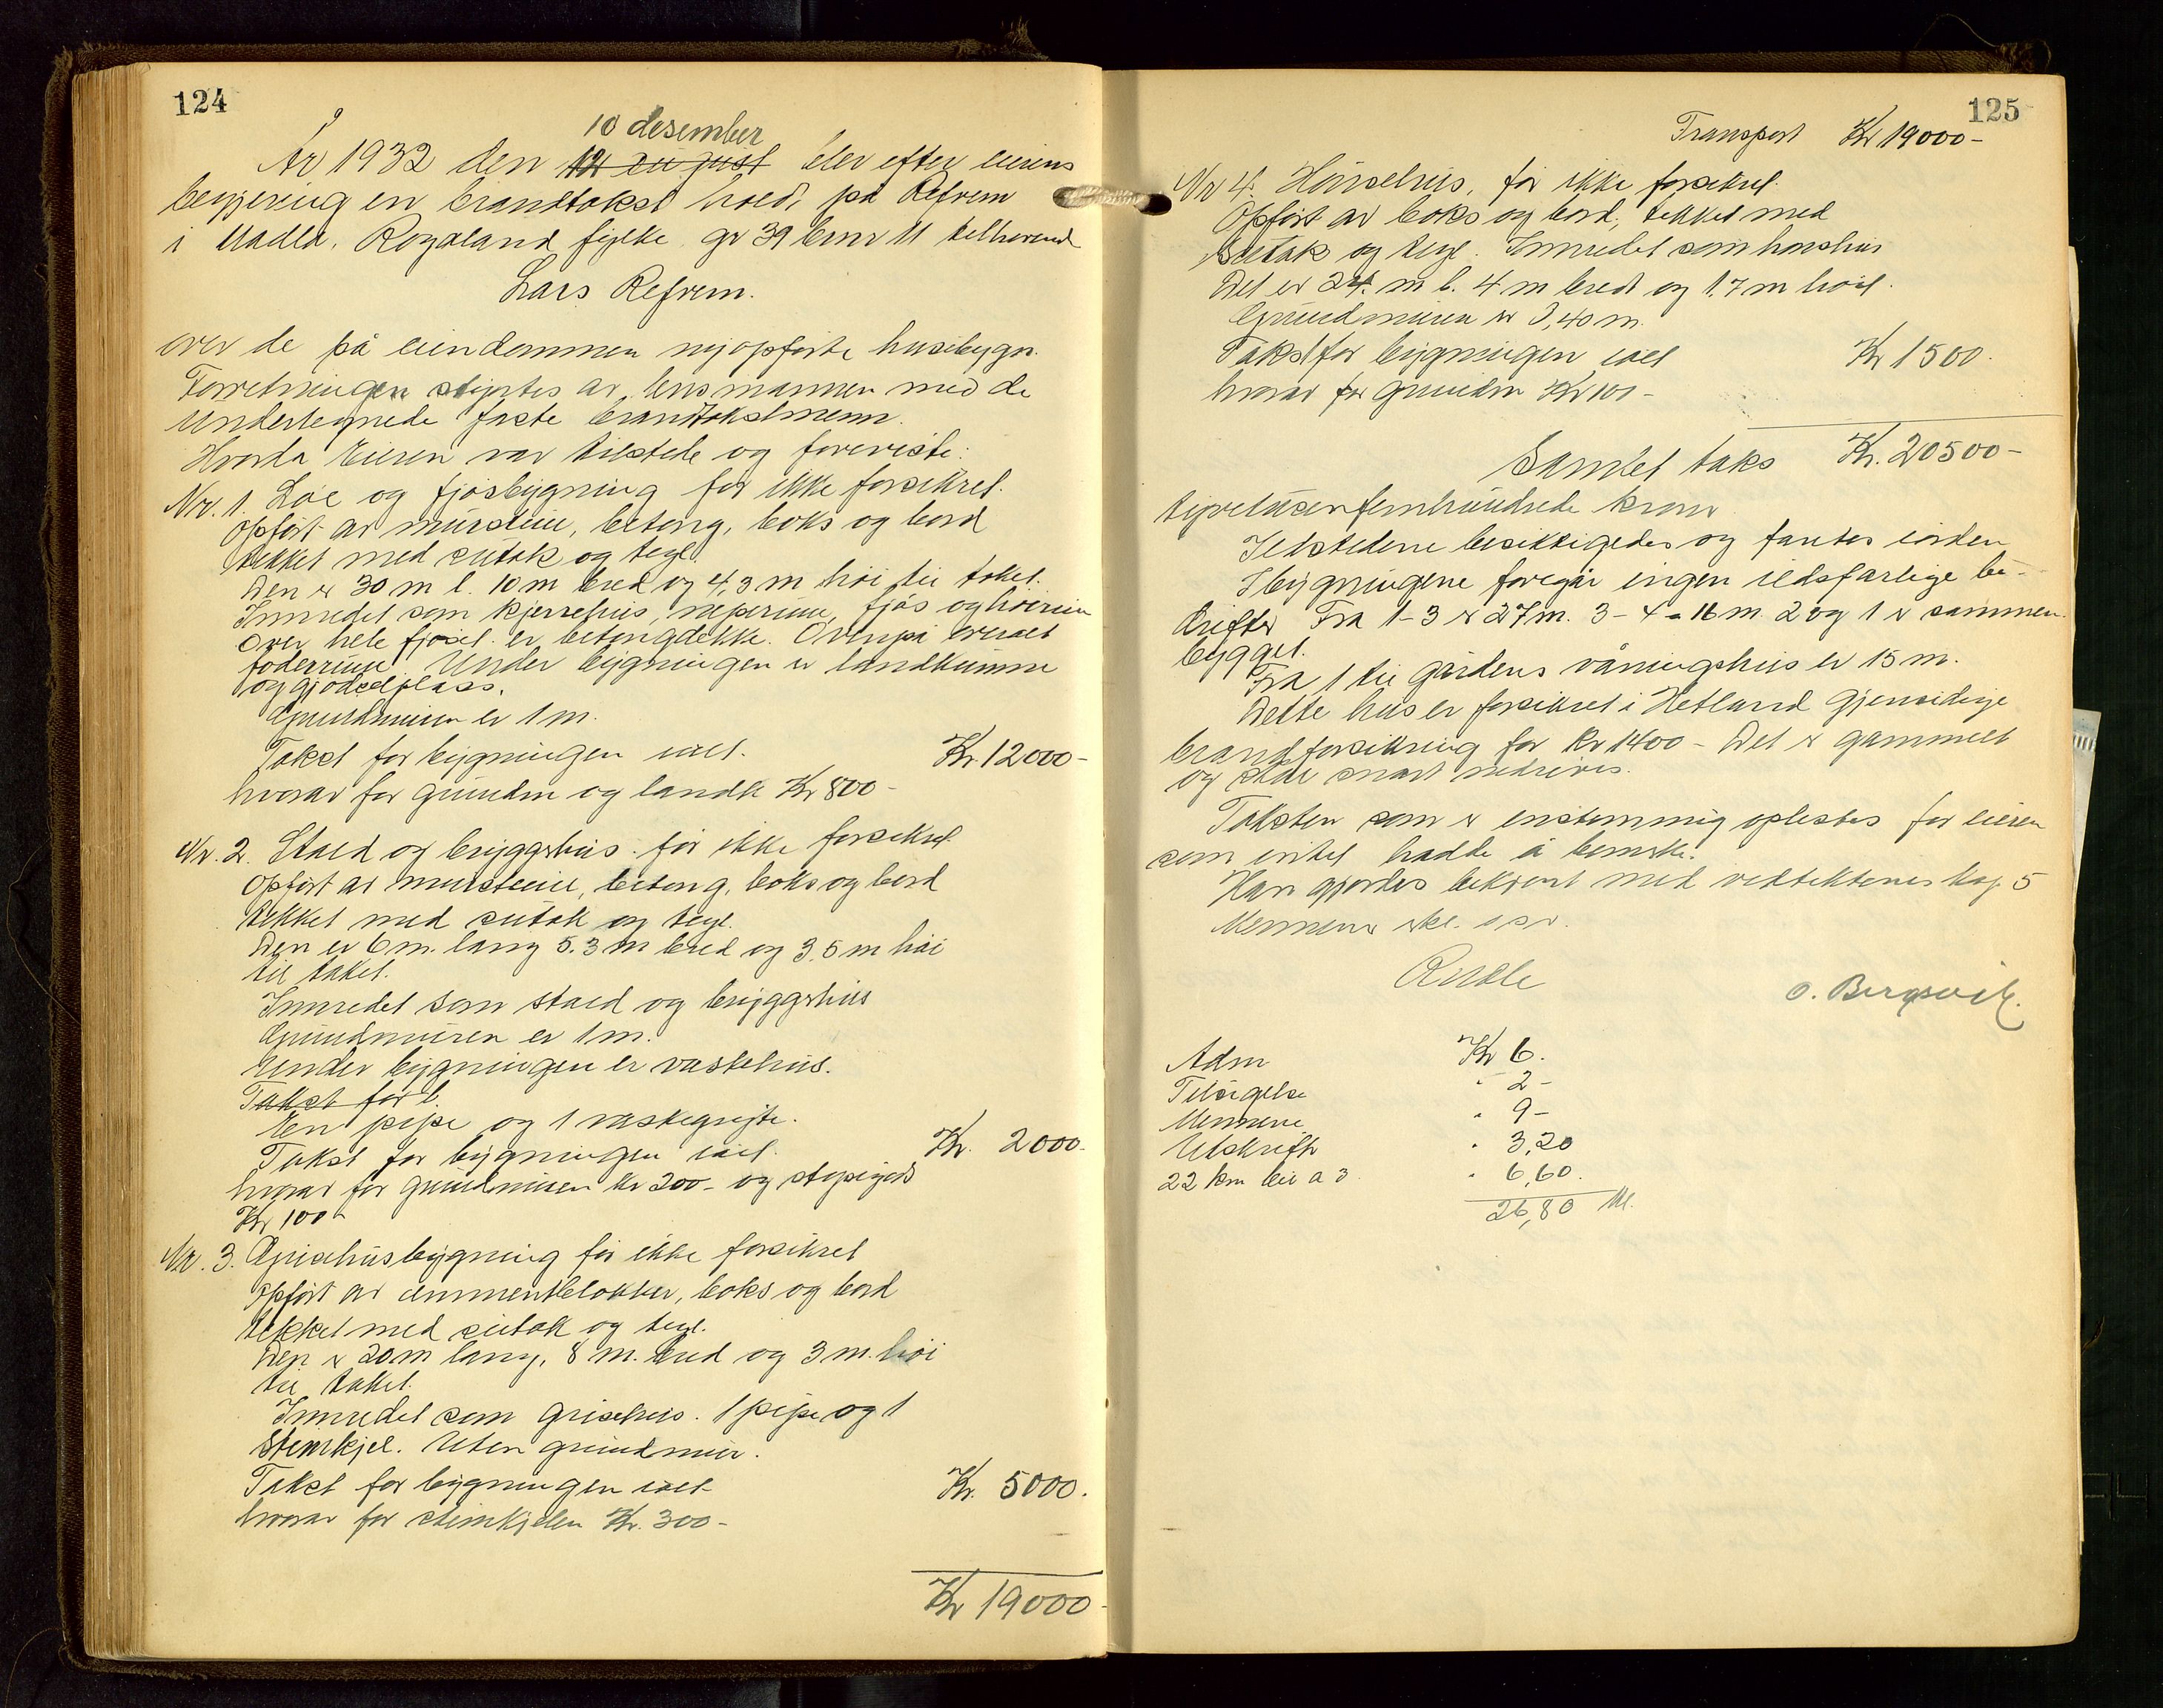 124
10 desember
År 1932 den 12 august blev efter eierens
begjering en brandtakst holdt på Refrem
i Madla, Rogaland fylke gr 39 brnr 11 tilhørende
Lars Refrem.
over de på eiendommen nyopførte husebygn.
Forretningen styrtes av lensmannen med de
undertegnede faste brandtakstmenn.
Hvorda Eieren var tilstede og foreviste:
Nr. 1. Løe og fjøsbygning før ikke forsikret.
Opført av murstein, betong, boks og bord
tekket med sutak og tegl.
Den er 30 m l. 10 m bred og 4,3 m høi til taket.
Innredet som kjerrehus, neperum, fjøs og høirum
Over hele fjøset er betongdekke. Ovenpå overalt
foderrum. Under bygningen er landkumme
og gjødselplass.
Grundmuren er 1 m.
Takst for bygningen ialt. Kr. 12000-
hvorav for grundm og landk Kr 800-
Nr. 2. Stald og bryggehus før ikke forsikret
Opført av murstein, betong, boks og bord
tekket med sutak og tegl.
Den er 6 m. lang 5.3 m bred og 3.5 m høi
til taket.
Innredet som stald og bryggehus
Grundmuren er 1 m.
Under bygningen er vaskehus.
Takst for b.
En pipe og 1 vaskegryte.
Takst for bygningen ialt. Kr. 2000-
hvorav for grundmuren kr 200- og støpegods
Kr 100-
Nr. 3. Grisehusbygning før ikke forsikret
Opført av cementblokker, boks og bord
tekket med sutak og tegl.
Den er 20 m lang, 8 m. bred og 3 m. høi
til taket.
Innredet som grisehus. 1 pipe og 1
Stimkjel. Uten grundmur.
Takst for bygningen ialt Kr. 5000.
hvorav for stimkjelen Kr. 300-
Kr 19000-
125
Transport Kr 19000-
Nr 4. Hønsehus, før ikke forsikret.
Opført av boks og bord, tekket med
Sutak og tegl. Innredet som hønshus
Det er 24 m l. 4 m bredt og 1.7 m høit.
Grundmuren er 0,40 m.
Takst for bygningen ialt Kr 1500.
hvorav for grundm Kr 100-
Samlet takst Kr. 20500-
tyvetusenfemhundrede kroner
Ildstedene besiktigedes og fantes iorden
I bygningene foregår ingen ildsfarlige be-
drifter Fra 1-3 er 27 m. 3-4 = 16 m. 2 og 1 er sammen-
bygget.
Fra 1 til gårdens våningshus er 15 m.
Dette hus er forsikret i Hetland gjensidige
brandforsikring for kr 1400- Det er gammelt
og skal snart nedrives.
Taksten som er enstemmig oplestes for eieren
som intet hadde å bemerke.
Han gjordes bekjent med vedtektenes kap 5
Mennene
O. Bergsvik.
Adm Kr 6.
Tilsigelse " 2-
Mennene " 9-
Utskrift " 3,20
22 km bil a 3 " 6,60.
26,80